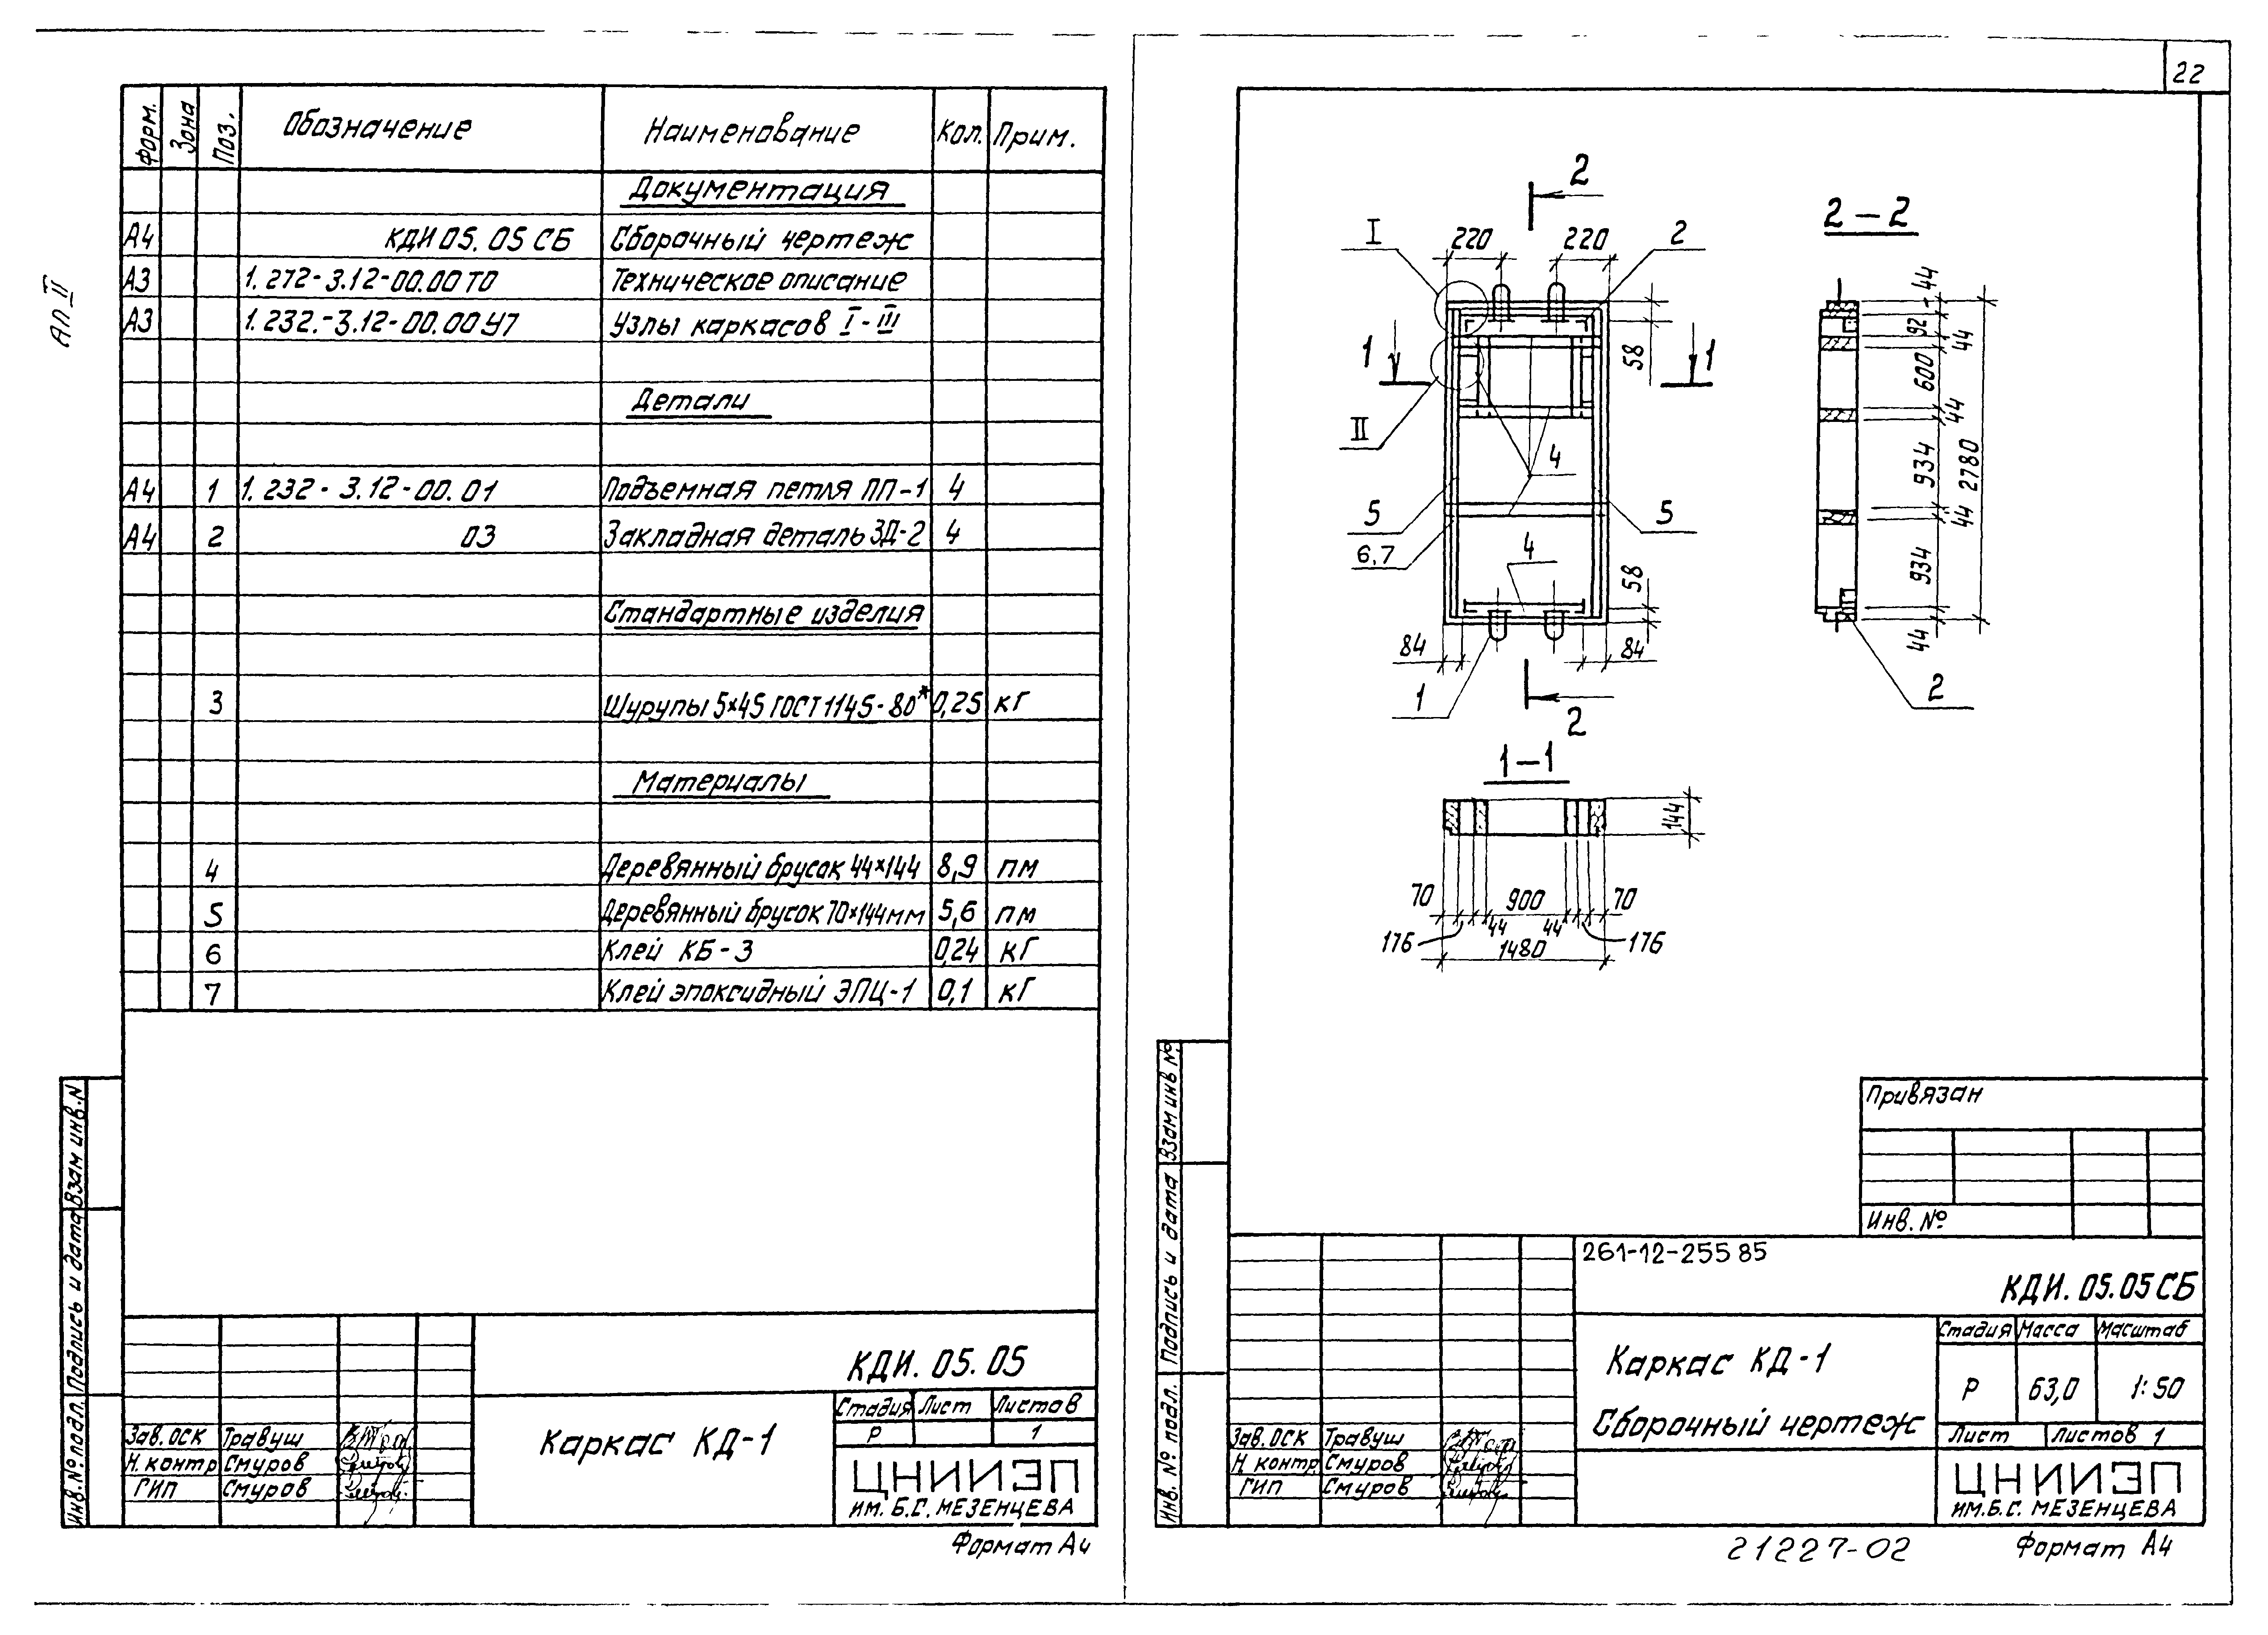 Ал II
Форм. Зона Поз. Обозначение Наименование Кол. Прим.
Документация
А4 КДИ 05.05 СБ Сборочный чертеж
А3 1.272-3.12-00.00 ТО Техническое описание
А3 1.232.-3.12-00.00 У7 Узлы каркасов I-III
Детали
А4 1 1.232-3.12-00.01 Подъемная петля ПП-1 4
А4 2 03 Закладная деталь ЗД-2 4
Стандартные изделия
3 Шурупы 5×45 ГОСТ 1145-80* 0,25 кг
Материалы
4 Деревянный брусок 44×144 8,9 пм
5 Деревянный брусок 70×144мм 5,6 пм
6 Клей КБ-3 0,24 кг
7 Клей эпоксидный ЭПЦ-1 0,1 кг
Инв.№ подл. Подпись и дата Взам инв.N
КДИ. 05.05
Каркас КД-1
Стадия Лист Листов
Р 1
Зав. ОСК Травуш
Н. контр Смуров
ГИП Смуров
ЦНИИЭП
ИМ. Б.С. МЕЗЕНЦЕВА
Формат А4
22
2
2-2
I 220 220 2
44
92
44
1 1
58
600
44
II
934
2780
4
5 5
6,7
44
4
58
934
84 84
44
1
2
2
1-1
144
70 900 70
176 44 44 176
1480
Привязан
Инв. №
Инв. № подл. Подпись и дата Взам инв №
261-12-255 85
КДИ. 05.05 СБ
Каркас КД-1
Сборочный чертеж
Стадия Масса Масштаб
Р 63,0 1:50
Лист Листов 1
Зав. ОСК Травуш
Н. контр. Смуров
ГИП Смуров
ЦНИИЭП
ИМ. Б.С. МЕЗЕНЦЕВА
21227-02
Формат А4